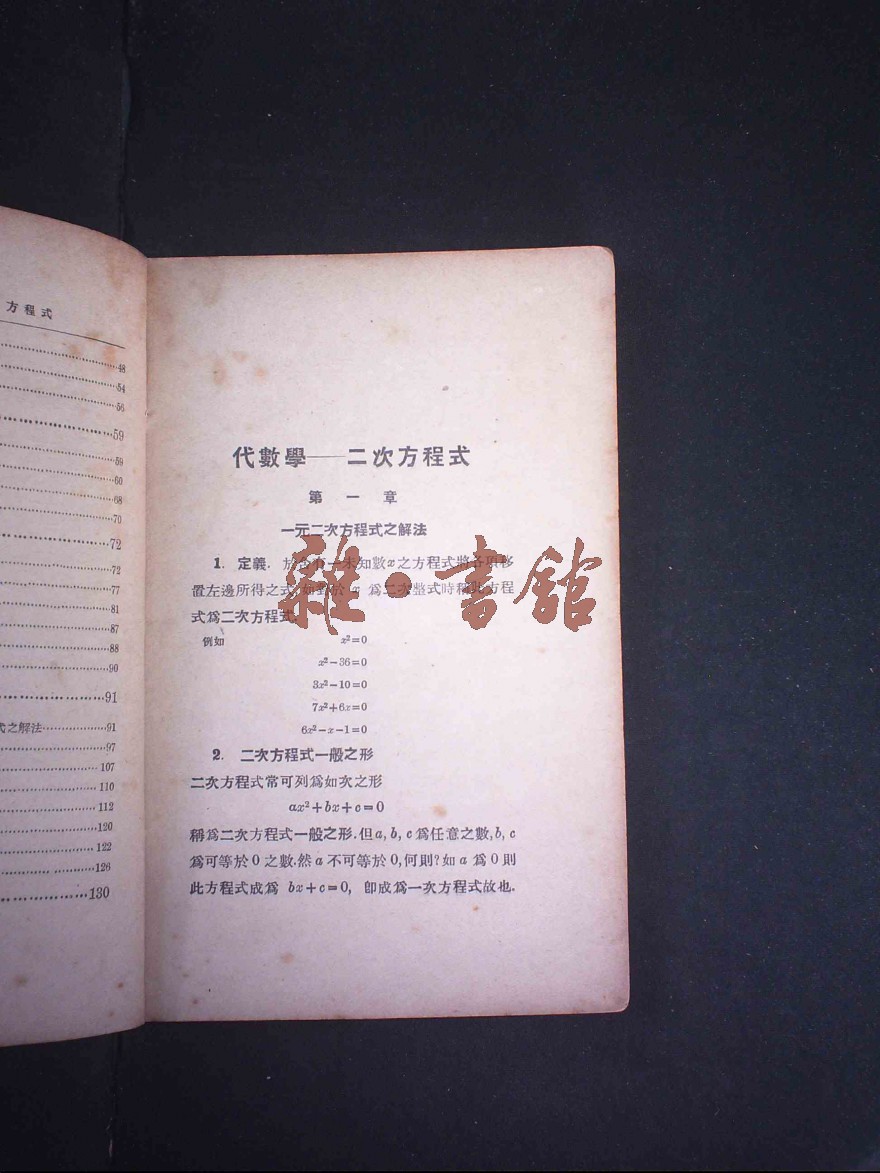 方程式
48
54
56
59
59
60
68
70
72
72
77
81
87
88
90
91
之解法 91
97
107
110
112
120
122
126
130
代數學——二次方程式
第一章
一元二次方程式之解法
1. 定義. 於含有一未知數x之方程式將各項移
置左邊所得之式,如對於 x 爲二次整式時稱此方程
式爲二次方程式.
例如 x²=0
x²-36=0
3x²-10=0
7x²+6x=0
6x²-x-1=0
2. 二次方程式一般之形
二次方程式常可列爲如次之形
ax²+bx+c=0
稱爲二次方程式一般之形.但a, b, c爲任意之數,b, c
爲可等於0之數.然a不可等於0,何則?如a爲0則
此方程式成爲 bx+c=0, 卽成爲一次方程式故也.
雜·書館